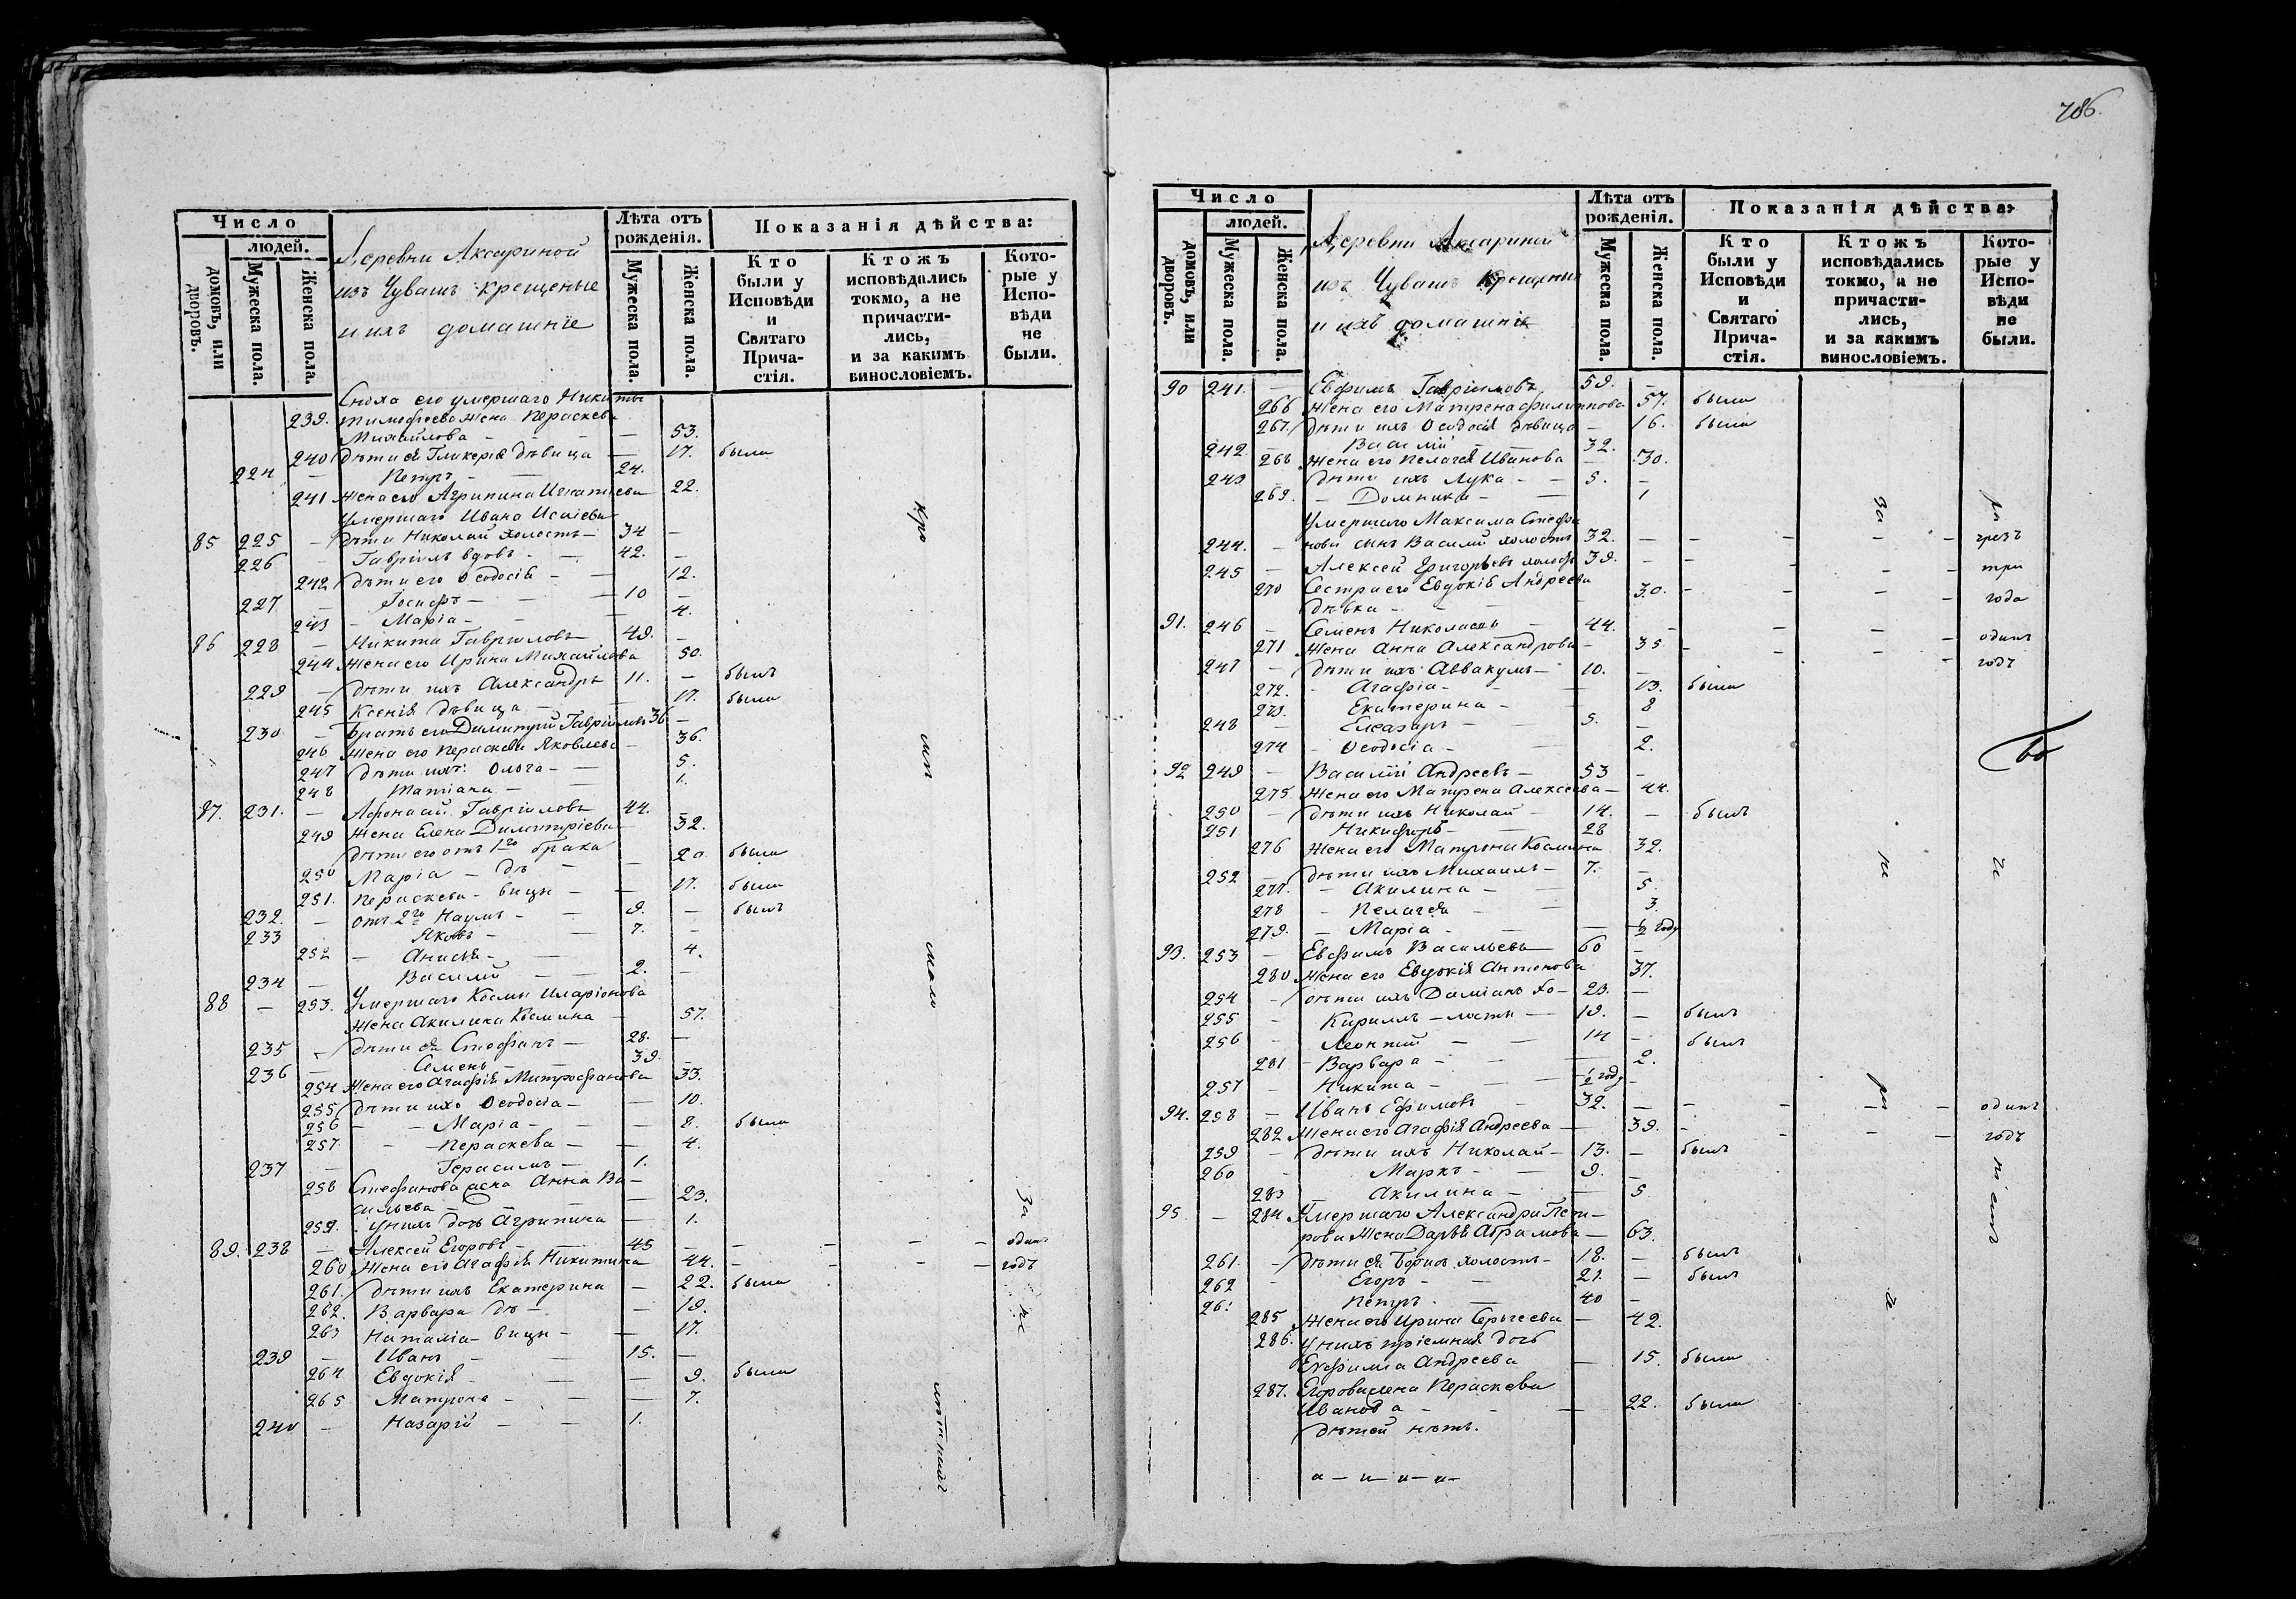 786.
Число
людей.
домовъ, или дворовъ.
Мужеска пола.
Женска пола.
Деревни Аксариной
изъ Чувашъ крещеные
и ихъ домашніе
Лѣта отъ рожденія.
Мужеска пола.
Женска пола.
Показанія дѣйства:
Кто были у Исповѣди и Святаго Прича-стія.
Ктожъ исповѣдались токмо, а не причасти-лись, и за какимъ винословіемъ.
Кото-рые у Испо-вѣди не были.
Сноха его умершаго Никиты
239. Тимофеева жена Пераскева
Михайлова — 53.
240 дѣти ея Гликерія дѣвица — 17. была
224 — Петръ — 24.
241 жена его Агрипина Игнатьева 22.
Умершаго Ивана Исаіева
85 225 — дѣти Николай холостъ — 34 —
226 Гавріилъ вдовъ — 42. —
242 дѣти его Ѳеодосія — 12.
227 — Іосифъ — 10 —
243 — Марія — 4.
86 228 — Никита Гавріиловъ 49. —
244 жена его Ирина Михайлова 50.
229 — дѣти ихъ Александръ 11. — былъ
245 Ксенія дѣвица — 17. была
230 — братъ его Димитрій Гавріиловъ 36 —
246 жена его Пераскева Яковлева — 36.
247 дѣти ихъ: Ольга — 5.
248 Татіана — 1.
87. 231. — Афонасій Гавріиловъ 44. —
249 жена Елена Димитріева 32.
дѣти его отъ 1го брака
250 Марія — дѣ — 20 была
251. Пераскева — вицы — 17. была
232. — отъ 2го Наумъ — 9. — былъ
233 Яковъ — 7. —
252 — Анисія — 4.
234 — Василій — 2. —
88 — 253. Умершаго Космы Иларіонова
жена Акилина Космина — 57.
235 — дѣти ея Стефанъ — 28. —
236 — Семенъ — 39. —
254 жена его Агафія Митрофанова 33.
255 дѣти ихъ Ѳеодосія — 10.
256 — Марія — 8. была
257. — Пераскева — 4.
237 — Герасимъ — 1.
258 Стефанова жена Анна Ва-
сильева — 23.
259. у нихъ дочь Агрипина — 1.
89. 238 — Алексей Егоровъ — 45 — — — — одинъ
260 жена его Агафія Никитина 44. — — — — годъ
261. дѣти ихъ Екатерина — 22. была
262. Варвара дѣ — 19.
263 Наталіа — вицы — 17.
239 — Иванъ 15. —
264 Евдокія — 9. была
265 Матрона — 7.
240 — Назарій — 1.
за
Число
людей.
домовъ, или дворовъ.
Мужеска пола.
Женска пола.
Деревни Аксариной
изъ Чувашъ крещеные
и ихъ домашніе
Лѣта отъ рожденія.
Мужеска пола.
Женска пола.
Показанія дѣйства:
Кто были у Исповѣди и Святаго Прича-стія.
Ктожъ исповѣдались токмо, а не причасти-лись, и за какимъ винословіемъ.
Кото-рые у Испо-вѣди не были.
90 241. — Евфимъ Гавріиловъ 59. —
266 жена его Матрена Филиппова 57. была
267. дѣти ихъ Ѳеодосія дѣвица — 16. была
242 Василій — 32.
268 жена его Пелагея Иванова — 30.
243 — дѣти ихъ Лука — 5. —
269. — Домника — 1
Умершаго Максима Стефа
244. — нова сынъ Василій холостъ 32. — — — — — чрезъ
245 — Алексей Григорьевъ холостъ 39. — — — — — три
270 Сестра его Евдокія Андреева 30. — — — — года
дѣвка —
91. 246 — Семенъ Николаевъ 44. — — — — одинъ
271 жена Анна Александрова — 35 — — — — годъ
247 — дѣти ихъ Аввакумъ — 10. —
272. — Агафіа — 13. была
273. Екатерина — 8
248 — Елеазаръ — 5. —
274 — Ѳеодосіа — 2.
92 249 — Василій Андреевъ — 53 —
275 жена его Матрена Алексеева — 44.
250 — дѣти ихъ Николай — 14. — былъ
251 Никифоръ — 28
276 жена его Матрона Космина 32.
252 — дѣти ихъ Михаилъ — 7. —
277. — Акилина — 5.
278 — Пелагея — 3.
279. — Маріа — ½ году
93. 253 — Евфимъ Васильевъ 60 —
280 жена его Евдокія Антонова 37.
254 — дѣти ихъ Даміанъ хо — 23. —
255 — Кириллъ — лосты — 19. — былъ
256 — Леонтій — 14 — былъ
281 — Варвара — 2.
257 — Никита — ½ году —
94. 258 — Иванъ Ефимовъ 32. — — — — одинъ
282 жена его Агафія Андреева — 39. — — — годъ
259 — дѣти ихъ Николай — 13. — былъ
260 — Маркъ — 9. —
283 — Акилина — 5
95. — 284 Умершаго Александра Пет-
рова жена Дарья Абрамова — 63.
261. — дѣти ея Борисъ холостъ — 18. — былъ
262 — Егоръ — 21. — былъ
Петръ — 40 —
285 жена его Ирина Сергеева — 42.
286. у нихъ пріемная дочь
Евфиміа Андреева — 15. была
287. Егорова жена Пераскева
Иванова — 22. была
дѣтей нѣтъ.
за